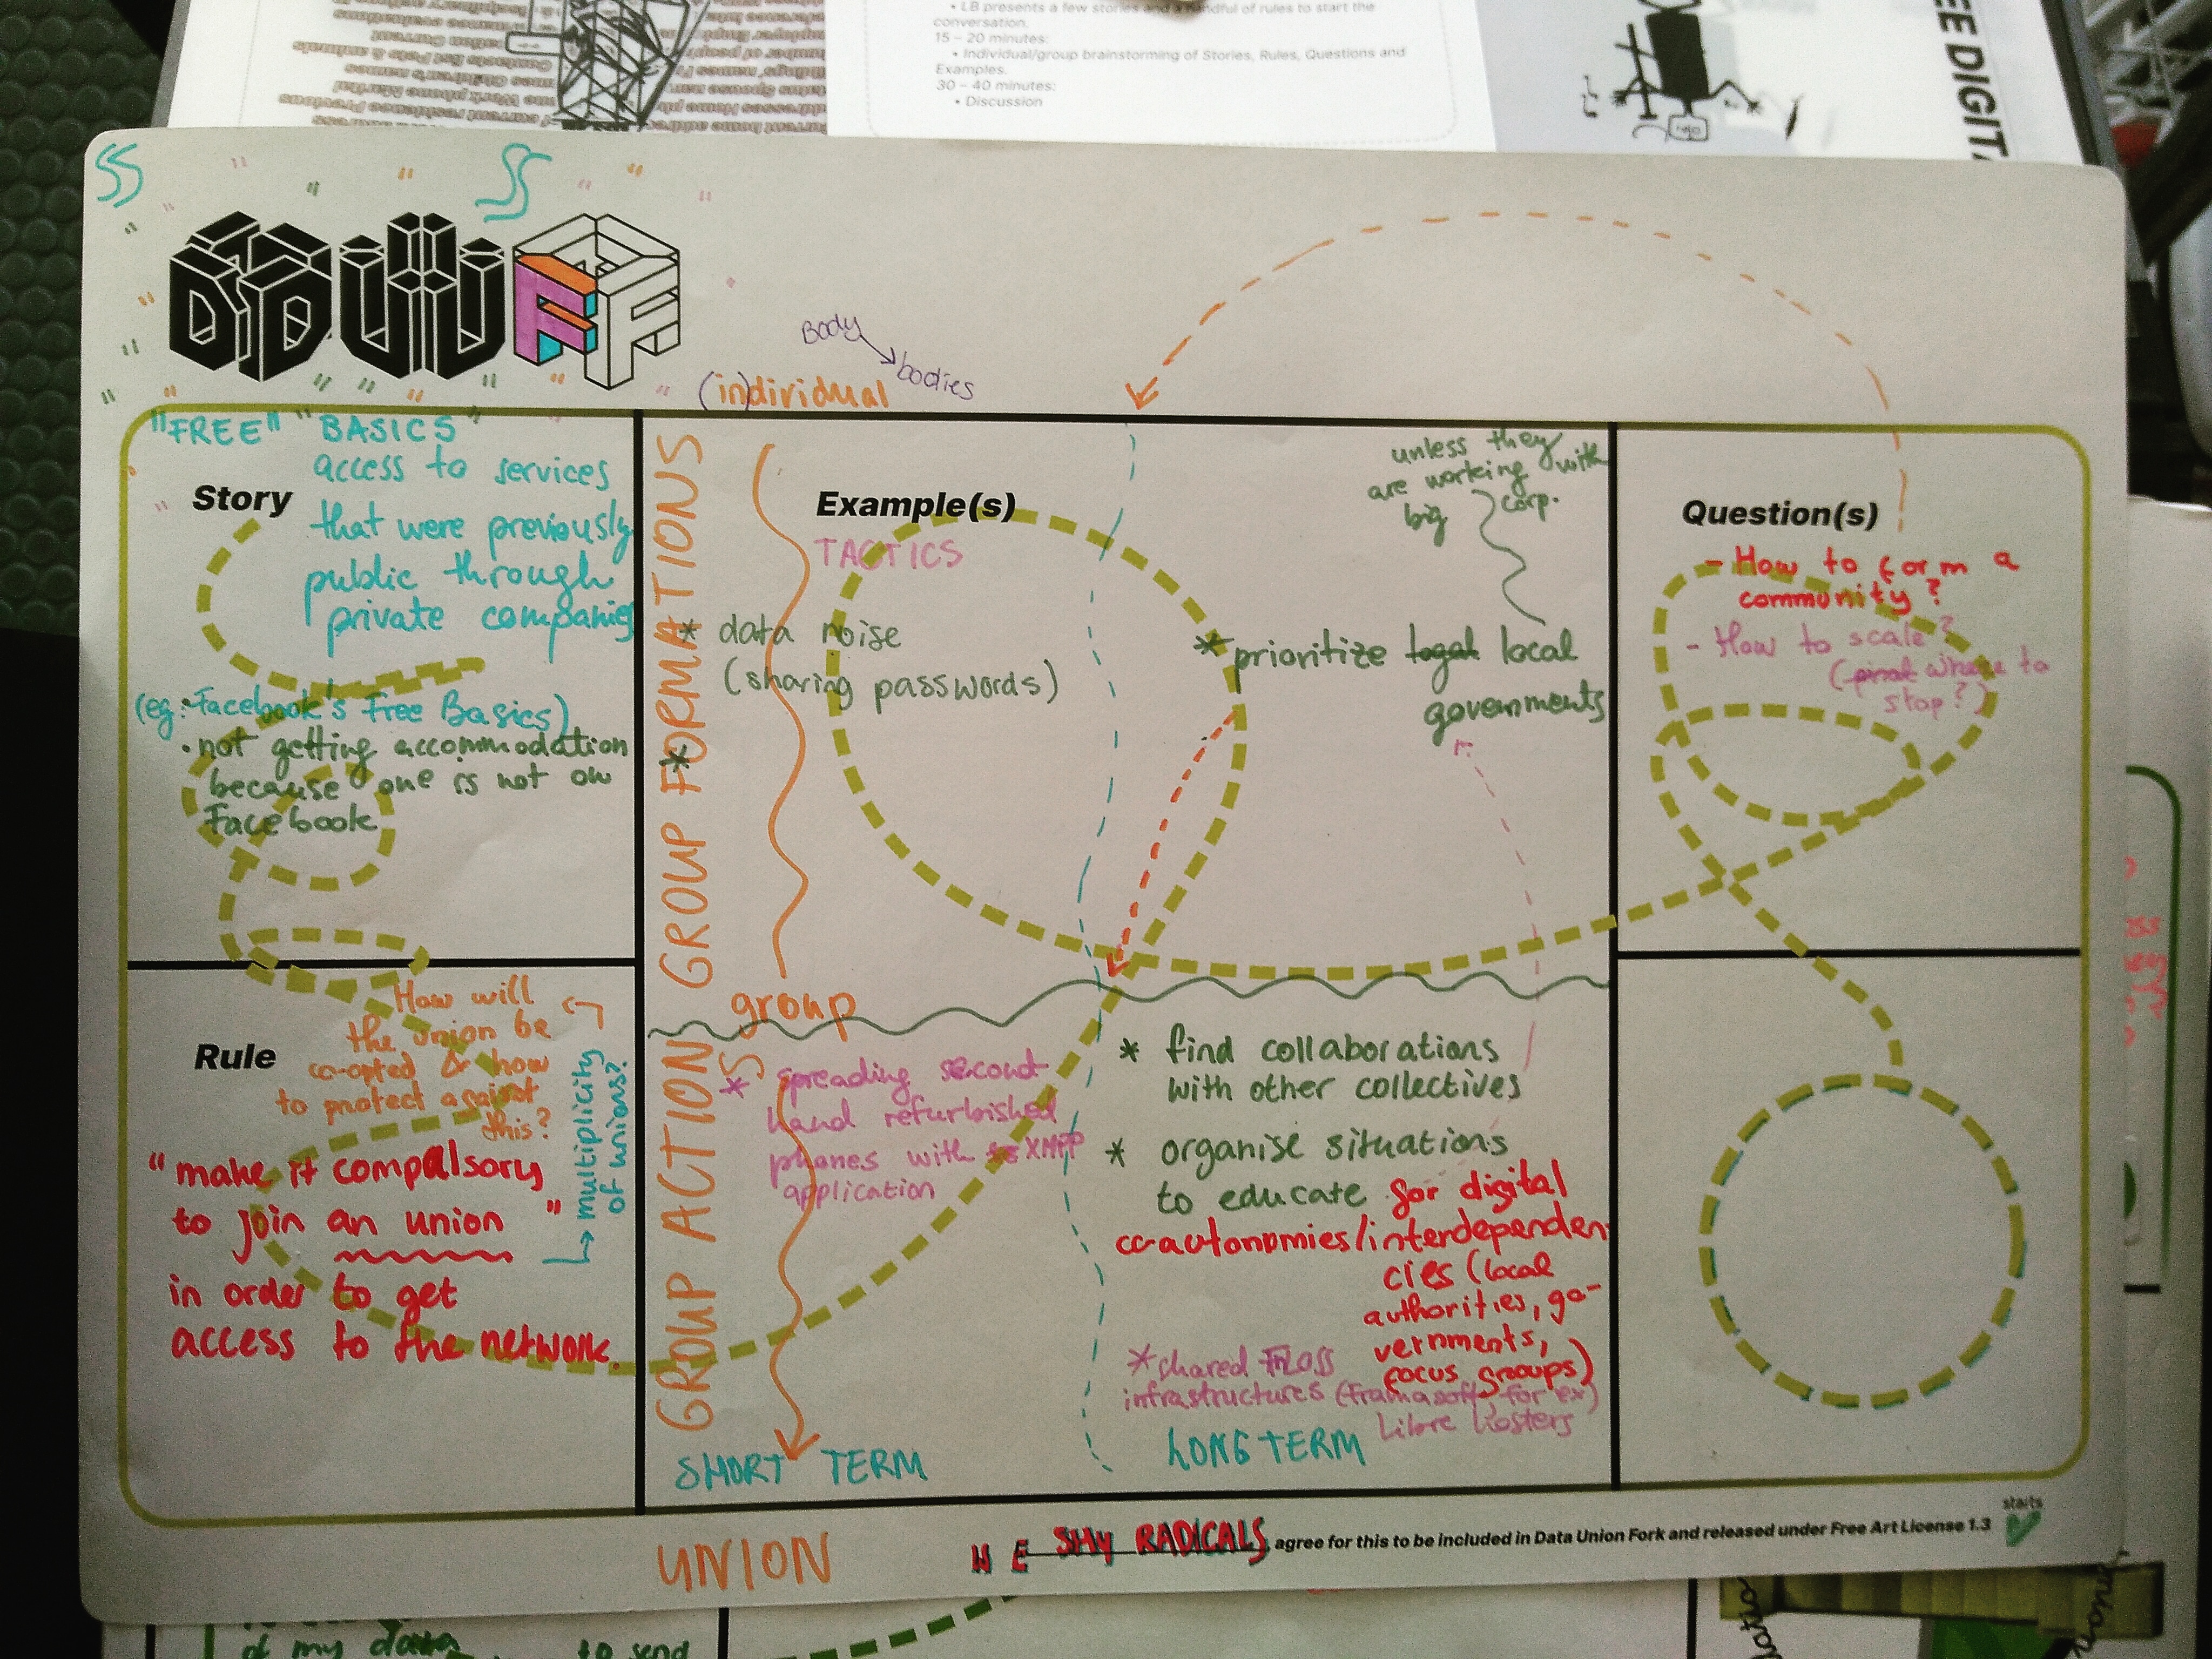 • LB presents a few stories and a handful of rules to start the
conversation.
15 – 20 minutes:
• Individual/group brainstorming of Stories, Rules, Questions and
Examples.
30 – 40 minutes:
• Discussion
EE DIGIT
DUF
Body
bodies
(in)dividual
"FREE" "BASICS"
access to services
that were previously
public through
private companies
Story
(eg: Facebook's Free Basics)
• not getting accommodation
because one is not on
Facebook
Rule
How will
the union be
co-opted & how
to protect against
this?
multiplicity
of unions?
"make it compulsory
to join an union"
in order to get
access to the network.
GROUP FORMATIONS
GROUP ACTIONS
Example(s)
TACTICS
* data noise
(sharing passwords)
*
unless they
are working with
big corp.
* prioritize legal local
governments
group
* spreading second
hand refurbished
phones with XMPP
application
* find collaborations
with other collectives
* organise situations
to educate for digital
co-autonomies/interdependen
cies (local
authorities, go-
vernments,
focus groups)
* shared FLOSS
infrastructures (Framasoft, for ex)
Libre hosters
SHORT TERM
LONG TERM
Question(s)
- How to form a
community?
- How to scale?
(where to
stop?)
UNION
WE SHY RADICALS, agree for this to be included in Data Union Fork and released under Free Art License 1.3
starts
of my data
to send